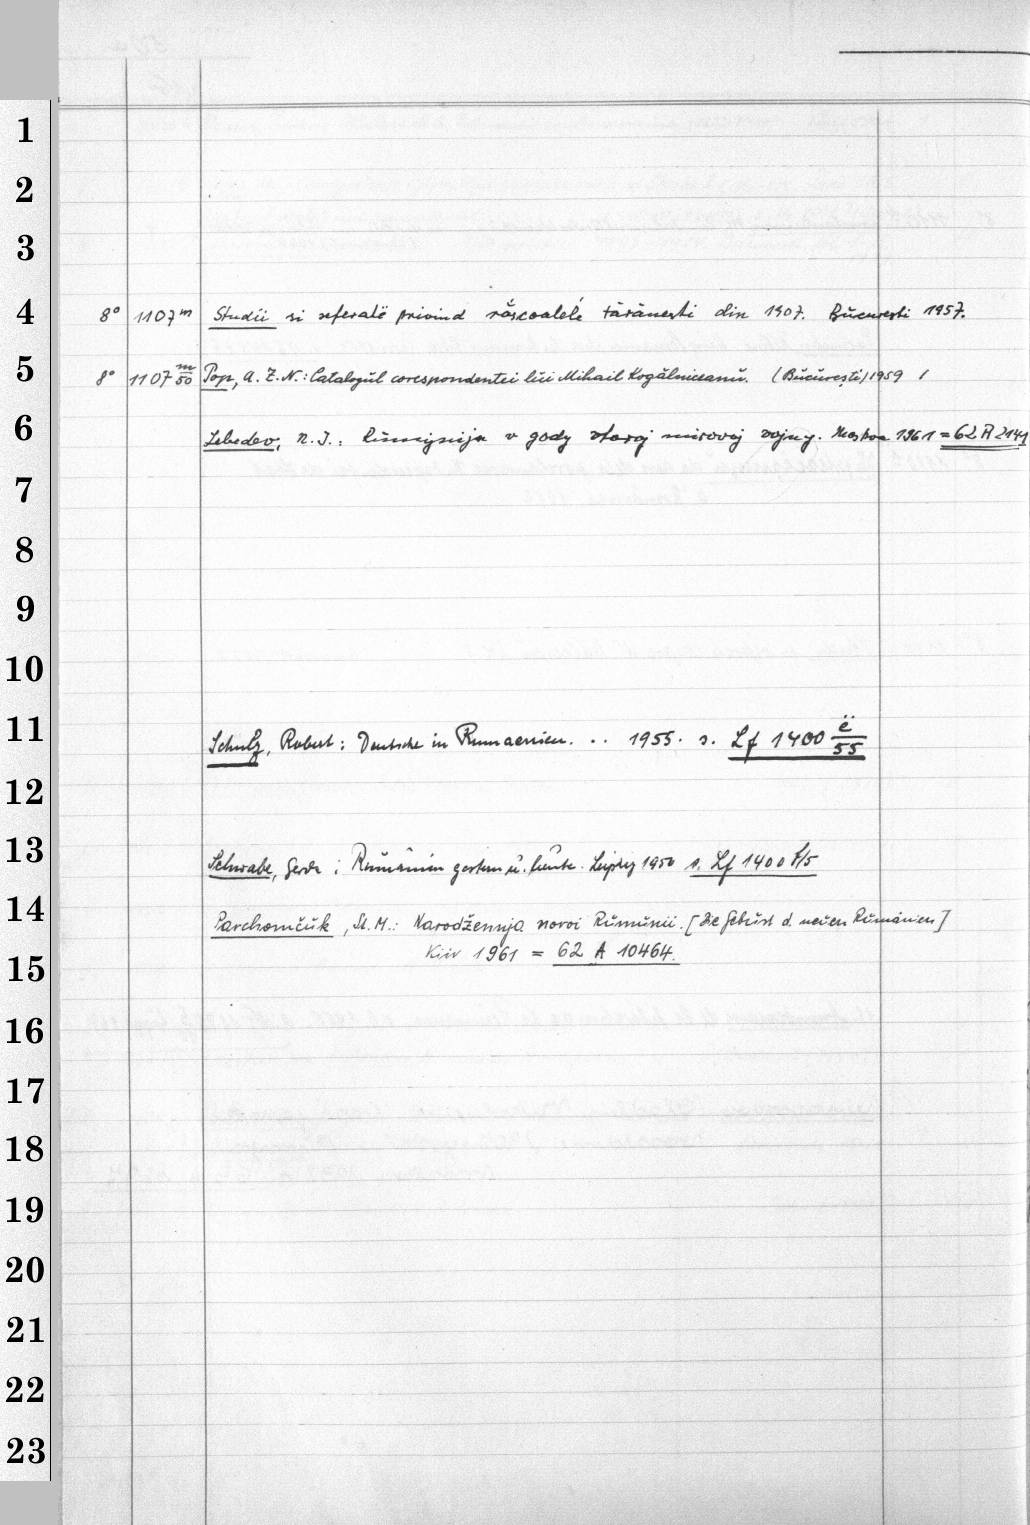 1
2
3
4
8° 1107 m Studii si referate privind răscoalele tărănesti din 1907. Bucuresti 1957.
5
8° 1107 m/50 Pop, A. Z. N.: Catalogul corespondentei lui Mihail Kogălniceanu. (București) 1959
6
Lebedev, N. I.: Rumynija v gody vtoroj mirovoj vojny. Moskva 1961 = 62 A 2141
7
8
9
10
11
Schulz, Robert: Deutsche in Rumaenien. .. 1955. s. Lf 1400 ë/55
12
13
Schwabe, Gerda: Rumänien gestern u. heute. Leipzig 1950 s. Lf 1400 f/5
14
Parchomčuk, St. M.: Narodžennja novoi Rumunii. [Die Geburt d. neuen Rumänien]
Kiiv 1961 = 62 A 10464.
15
16
17
18
19
20
21
22
23